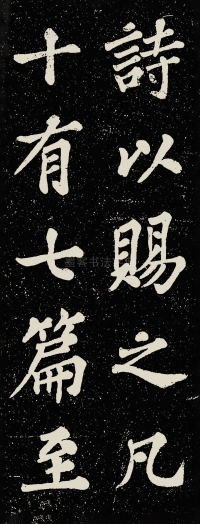 詩以賜之凡
十有七篇至